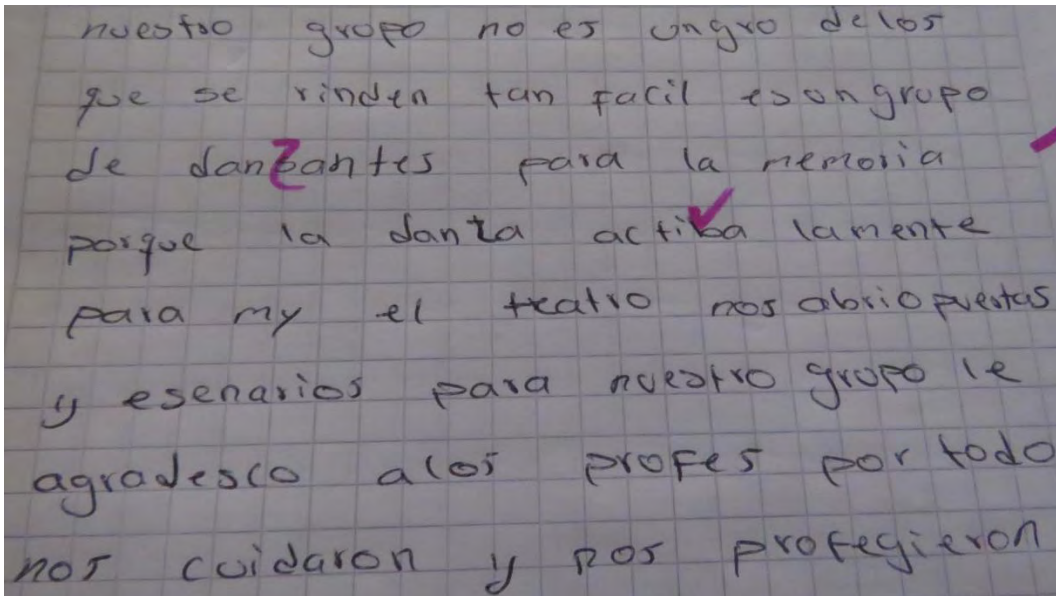 nuestro grupo no es ungro delos
que se rinden tan facil esun grupo
de danzantes para la memoria
porque la danza activa lamente
para my el teatro nos abrio puertas
y esenarios para nuestro grupo le
agradesco alos profes por todo
nos cuidaron y nos protegieron